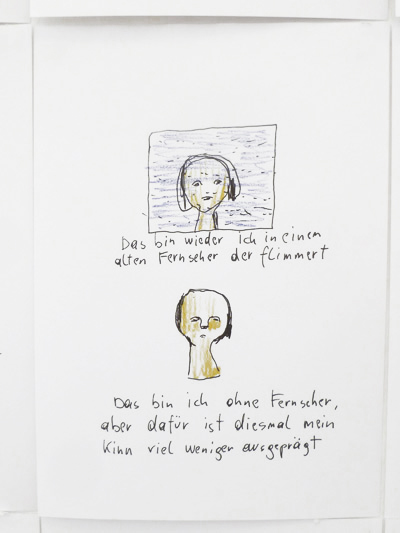 Das bin wieder Ich in einem
alten Fernseher der flimmert
Das bin ich ohne Fernseher,
aber dafür ist diesmal mein
Kinn viel weniger ausgeprägt